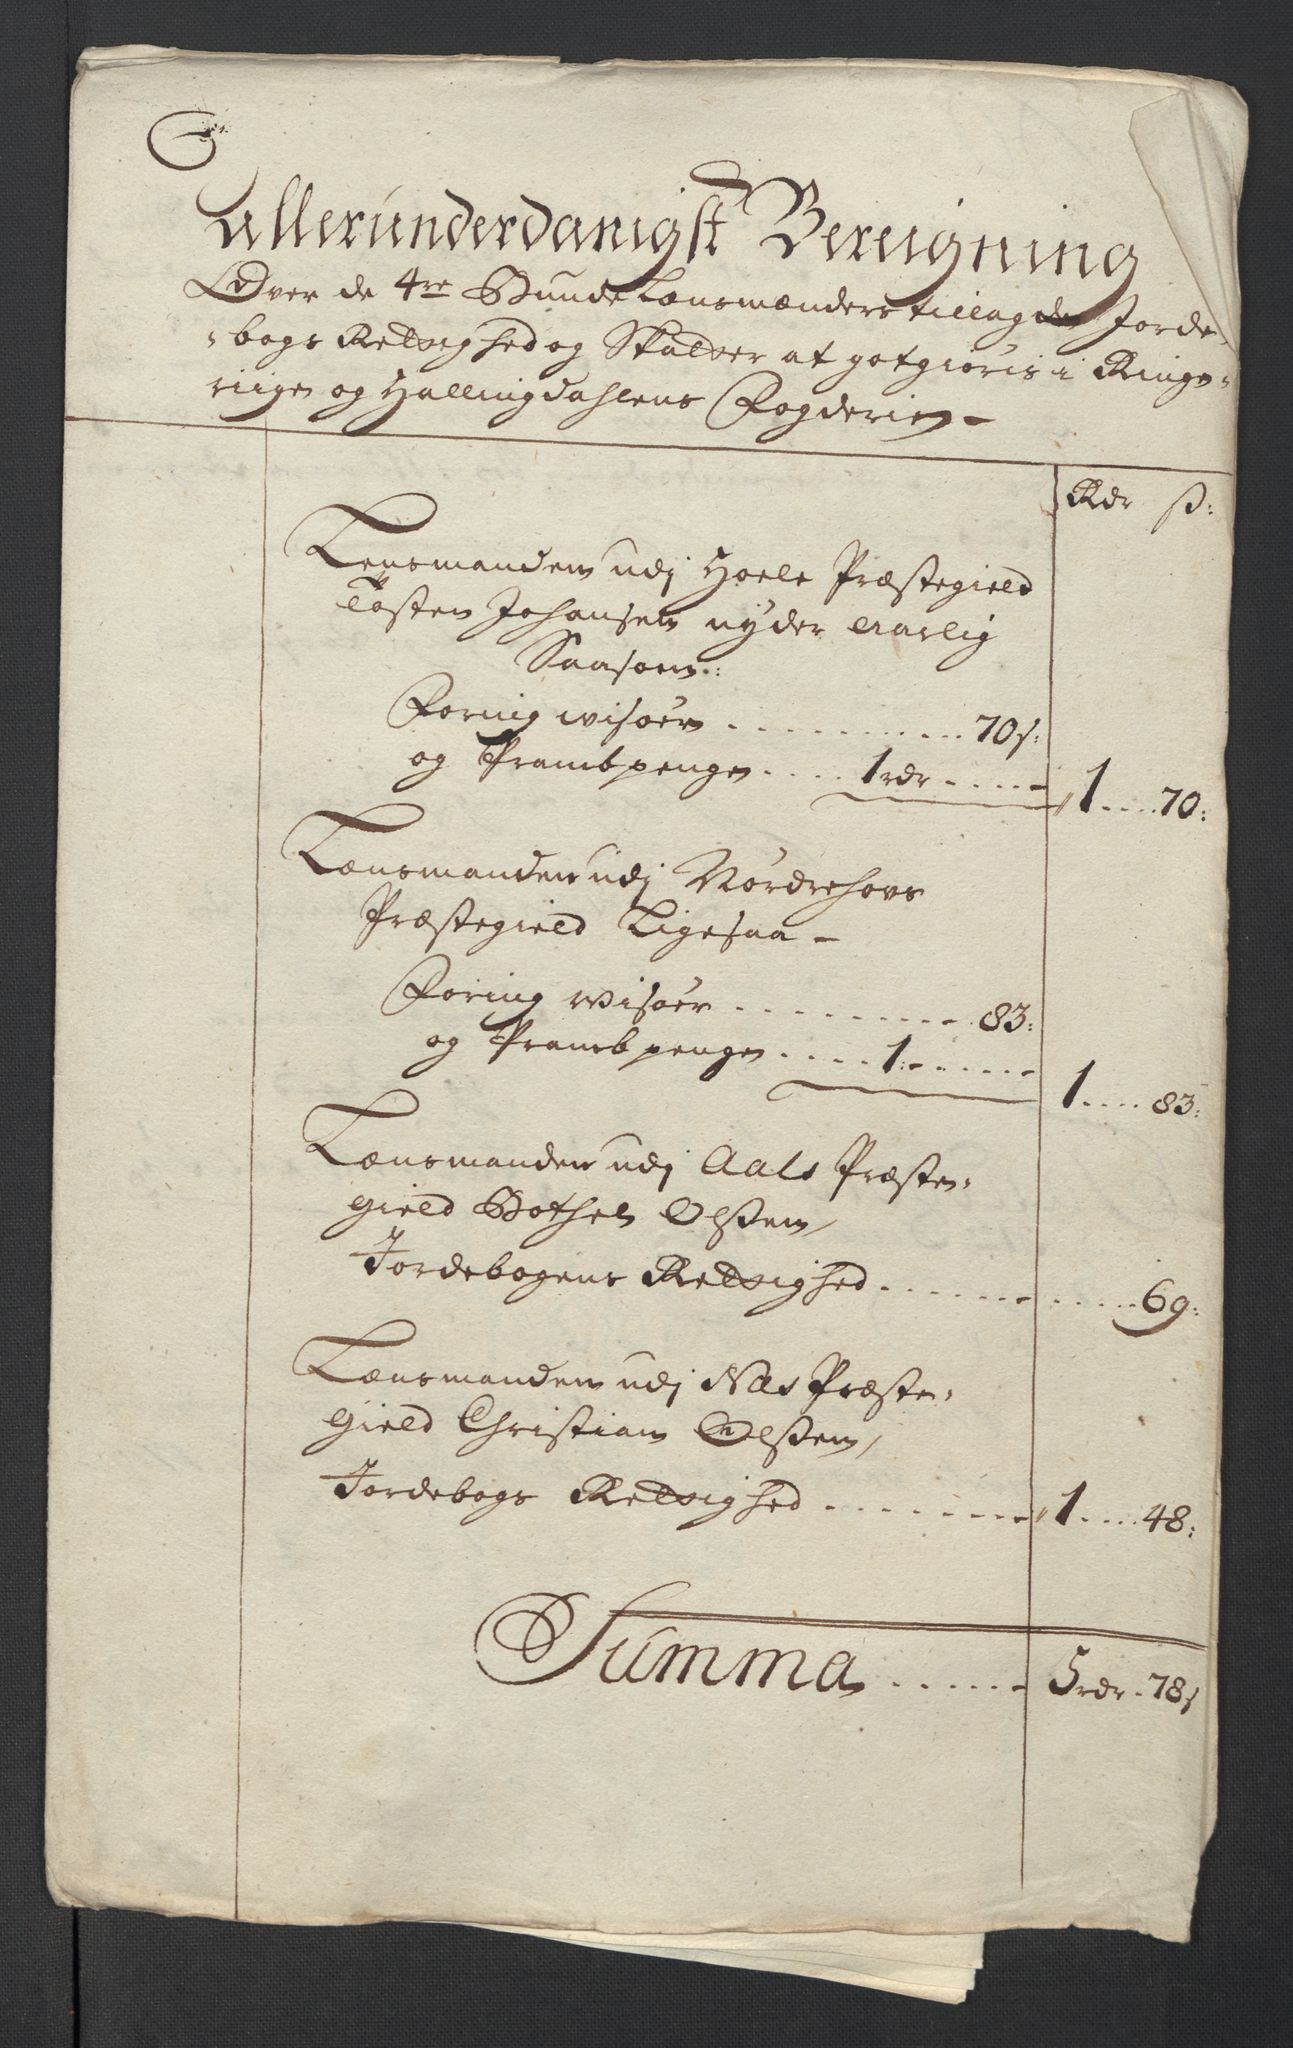 Allerunderdanigst Bereigning
Over de 4re Bunde Lensmænders tillagde Jorde-
bogs Retzighed og Skatter at gotgiøris i Ringe-
riige og Hallingdahlens Fogderie
Rdr ß:
Lensmanden udj Hoele Præstegield
Tosten Johansen nyder Aarlig
Saasom:
Foring wisøer 70 s:
og Frambpenge 1 rdr
1 70:
Lensmanden udj Nordrehovs
Præstegield Ligesaa
Foring wisøer 83:
og Framb penge 1:
1 83:
Lensmanden udj Aals Præste-
gield Bothel Olssen,
Jordebogens Retzighed 69:
Lensmanden udj Næs Præste-
gield Christian Olssen,
Jordebogs Retzighed 1 48:
Summa 5 rdr 78 s